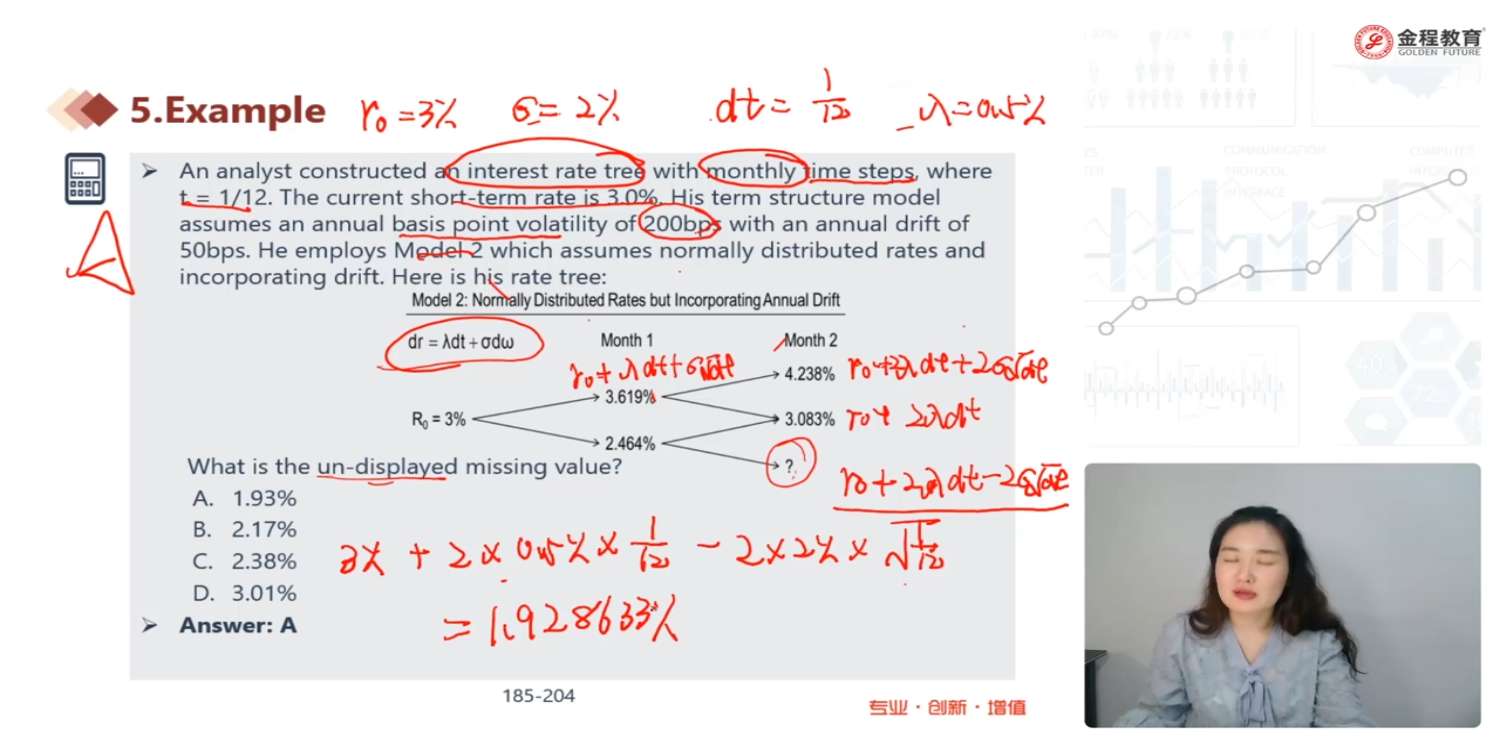 金程教育
GOLDEN FUTURE
5.Example
r₀ = 3% σ = 2% dt = 1/12 λ = 0.5%
➤ An analyst constructed an interest rate tree with monthly time steps, where
t = 1/12. The current short-term rate is 3.0%. His term structure model
assumes an annual basis point volatility of 200bps with an annual drift of
50bps. He employs Model 2 which assumes normally distributed rates and
incorporating drift. Here is his rate tree:
Model 2: Normally Distributed Rates but Incorporating Annual Drift
dr = λdt + σdω Month 1 Month 2
r₀ + λdt + σ√dt
4.238% r₀ + 2λdt + 2σ√dt
3.619%
R₀ = 3% 3.083% r₀ + 2λdt
2.464%
?
What is the un-displayed missing value?
r₀ + 2λdt - 2σ√dt
A. 1.93%
B. 2.17%
C. 2.38%
D. 3.01%
3% + 2 × 0.5% × 1/12 - 2 × 2% × √1/12
= 1.928633%
➤ Answer: A
185-204
专业·创新·增值